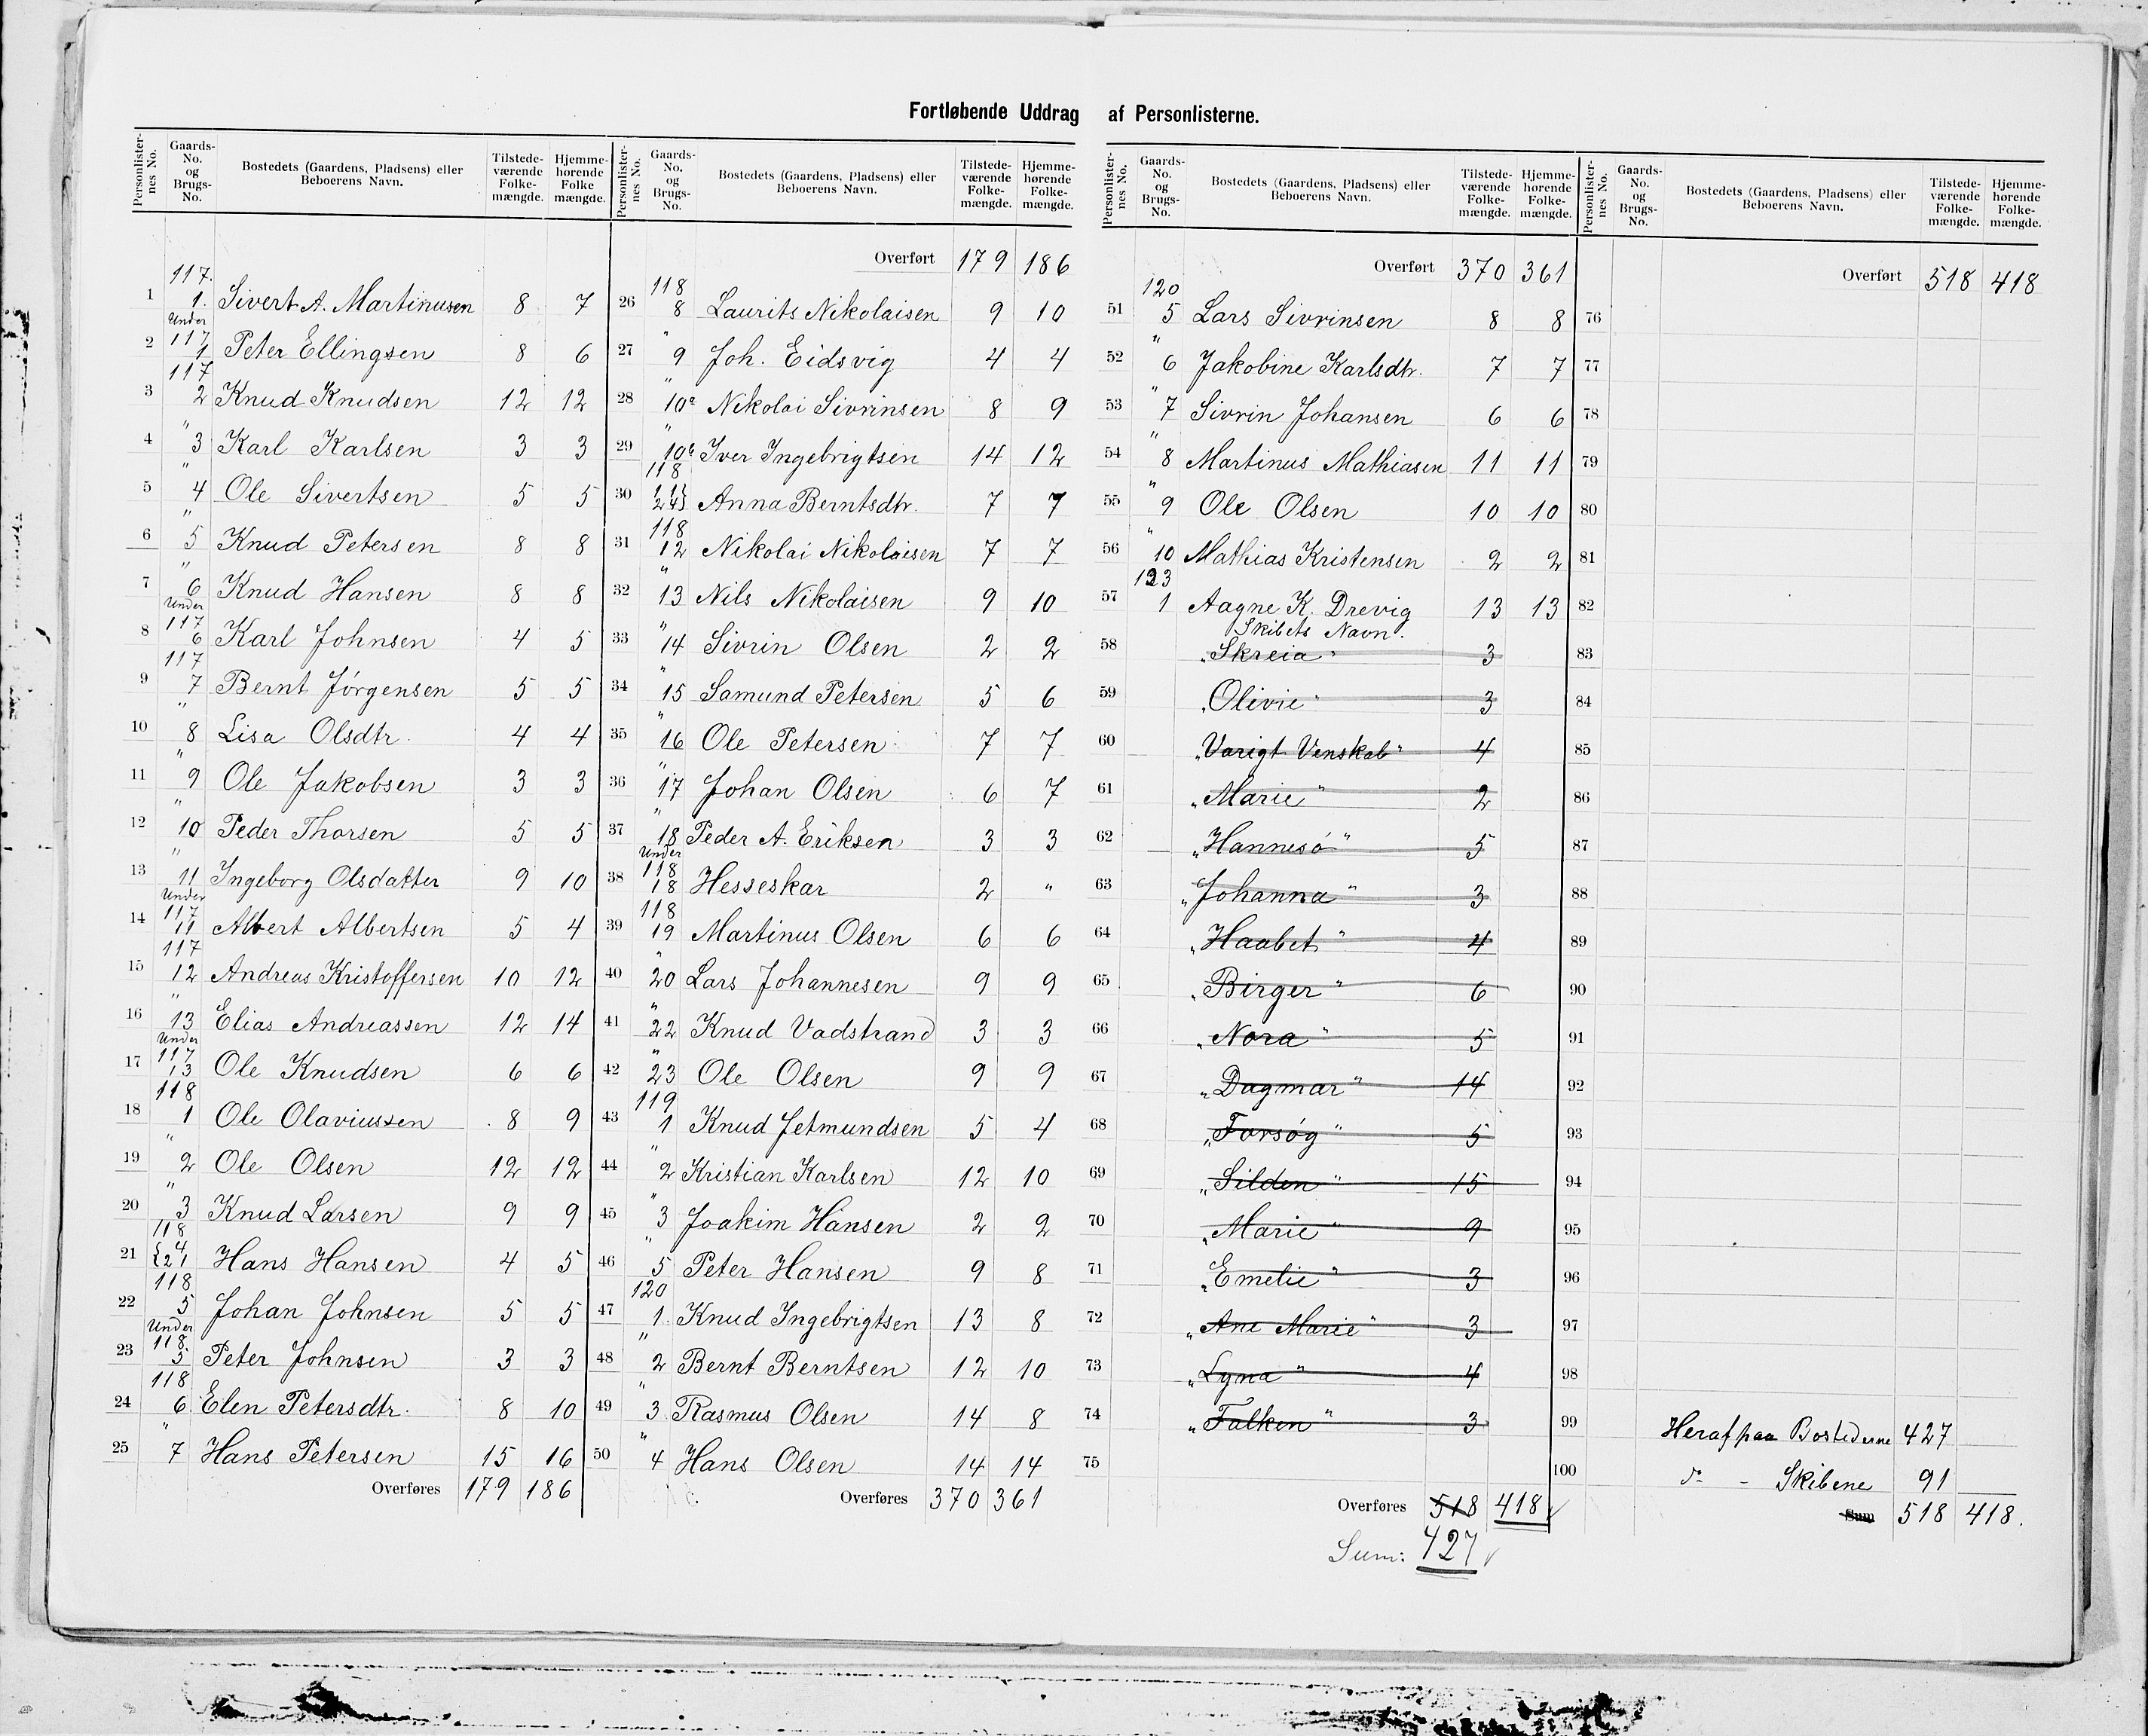 Fortløbende Uddrag af Personlisterne.
Personlister-nes No. | Gaards-No. og Brugs-No. | Bostedets (Gaardens, Pladsens) eller Beboerens Navn. | Tilstede-værende Folke-mængde. | Hjemme-hørende Folke mængde.
1 | 117. 1. | Sivert A. Martinusen | 8 | 7
2 | Under 117 1 | Peter Ellingsen | 8 | 6
3 | 117 2 | Knud Knudsen | 12 | 12
4 | " 3 | Karl Karlsen | 3 | 3
5 | " 4 | Ole Sivertsen | 5 | 5
6 | " 5 | Knud Petersen | 8 | 8
7 | " 6 | Knud Hansen | 8 | 8
8 | Under 117 6 | Karl Johnsen | 4 | 5
9 | 117 7 | Bernt Jørgensen | 5 | 5
10 | " 8 | Lisa Olsdtr. | 4 | 4
11 | " 9 | Ole Jakobsen | 3 | 3
12 | " 10 | Peder Thorsen | 5 | 5
13 | " 11 | Ingeborg Olsdatter | 9 | 10
14 | Under 117 11 | Albert Albertsen | 5 | 4
15 | 117 12 | Andreas Kristoffersen | 10 | 12
16 | " 13 | Elias Andreassen | 12 | 14
17 | Under 117 13 | Ole Knudsen | 6 | 6
18 | 118 1 | Ole Olaviussen | 8 | 9
19 | " 2 | Ole Olsen | 12 | 12
20 | " 3 | Knud Larsen | 9 | 9
21 | 118 { 4 21 | Hans Hansen | 4 | 5
22 | 118 5 | Johan Johnsen | 5 | 5
23 | Under 118 5 | Peter Johnsen | 3 | 3
24 | 118 6 | Elen Petersdtr. | 8 | 10
25 | " 7 | Hans Petersen | 15 | 16
Overføres 179 | 186
Personlister-nes No. | Gaards-No. og Brugs-No. | Bostedets (Gaardens, Pladsens) eller Beboerens Navn. | Tilstede-værende Folke-mængde. | Hjemme-hørende Folke-mængde.
Overført 179 | 186
26 | 118 8 | Laurits Nikolaisen | 9 | 10
27 | " 9 | Joh. Eidsvig | 4 | 4
28 | " 10a | Nikolai Sivrinsen | 8 | 9
29 | " 10b | Iver Ingebrigtsen | 14 | 12
30 | 118 11 24} | Anna Berntsdtr. | 7 | 7
31 | 118 12 | Nikolai Nikolaisen | 7 | 7
32 | " 13 | Nils Nikolaisen | 9 | 10
33 | " 14 | Sivrin Olsen | 2 | 2
34 | " 15 | Samund Petersen | 5 | 6
35 | " 16 | Ole Petersen | 7 | 7
36 | " 17 | Johan Olsen | 6 | 7
37 | " 18 | Peder A. Eriksen | 3 | 3
38 | Under 118 18 | Hesseskar | 2 | "
39 | 118 19 | Martinus Olsen | 6 | 6
40 | " 20 | Lars Johannesen | 9 | 9
41 | " 22 | Knud Vadstrand | 3 | 3
42 | " 23 | Ole Olsen | 9 | 9
43 | 119 1 | Knud Jetmundsen | 5 | 4
44 | " 2 | Kristian Karlsen | 12 | 10
45 | " 3 | Joakim Hansen | 2 | 2
46 | " 5 | Peter Hansen | 9 | 8
47 | 120 1. | Knud Ingebrigtsen | 13 | 8
48 | " 2 | Bernt Berntsen | 12 | 10
49 | " 3 | Rasmus Olsen | 14 | 8
50 | " 4 | Hans Olsen | 14 | 14
Overføres 370 | 361
Personlister-nes No. | Gaards-No. og Brugs-No. | Bostedets (Gaardens, Pladsens) eller Beboerens Navn. | Tilstede-værende Folke-mængde. | Hjemme-hørende Folke-mængde.
Overført 370 | 361
51 | 120 5 | Lars Sivrinsen | 8 | 8
52 | " 6 | Jakobine Karlsdtr. | 7 | 7
53 | " 7 | Sivrin Johansen | 6 | 6
54 | " 8 | Martinus Mathiasen | 11 | 11
55 | " 9 | Ole Olsen | 10 | 10
56 | " 10 | Mathias Kristensen | 2 | 2
57 | 123 1 | Aagne K. Drevig | 13 | 13
Skibets Navn.
58 | "Skreia" | 3
59 | "Olivie" | 3
60 | "Varigt Venskab" | 4
61 | "Marie" | 2
62 | "Hannesø" | 5
63 | "Johanna" | 3
64 | "Haabet" | 4
65 | "Birger" | 6
66 | "Nora" | 5
67 | "Dagmar" | 14
68 | "Forsøg" | 5
69 | "Silden" | 15
70 | "Marie" | 9
71 | "Emelie" | 3
72 | "Ane Marie" | 3
73 | "Lyna" | 4
74 | "Falken" | 3
75
Overføres 518 | 418
Sum: 427
Personlister-nes No. | Gaards-No. og Brugs-No. | Bostedets (Gaardens, Pladsens) eller Beboerens Navn. | Tilstede-værende Folke-mængde. | Hjemme-hørende Folke-mængde.
Overført 518 | 418
76
77
78
79
80
81
82
83
84
85
86
87
88
89
90
91
92
93
94
95
96
97
98
99 | Heraf paa Bostederne | 427
100 | do - Skibene | 91
Sum 518 | 418.